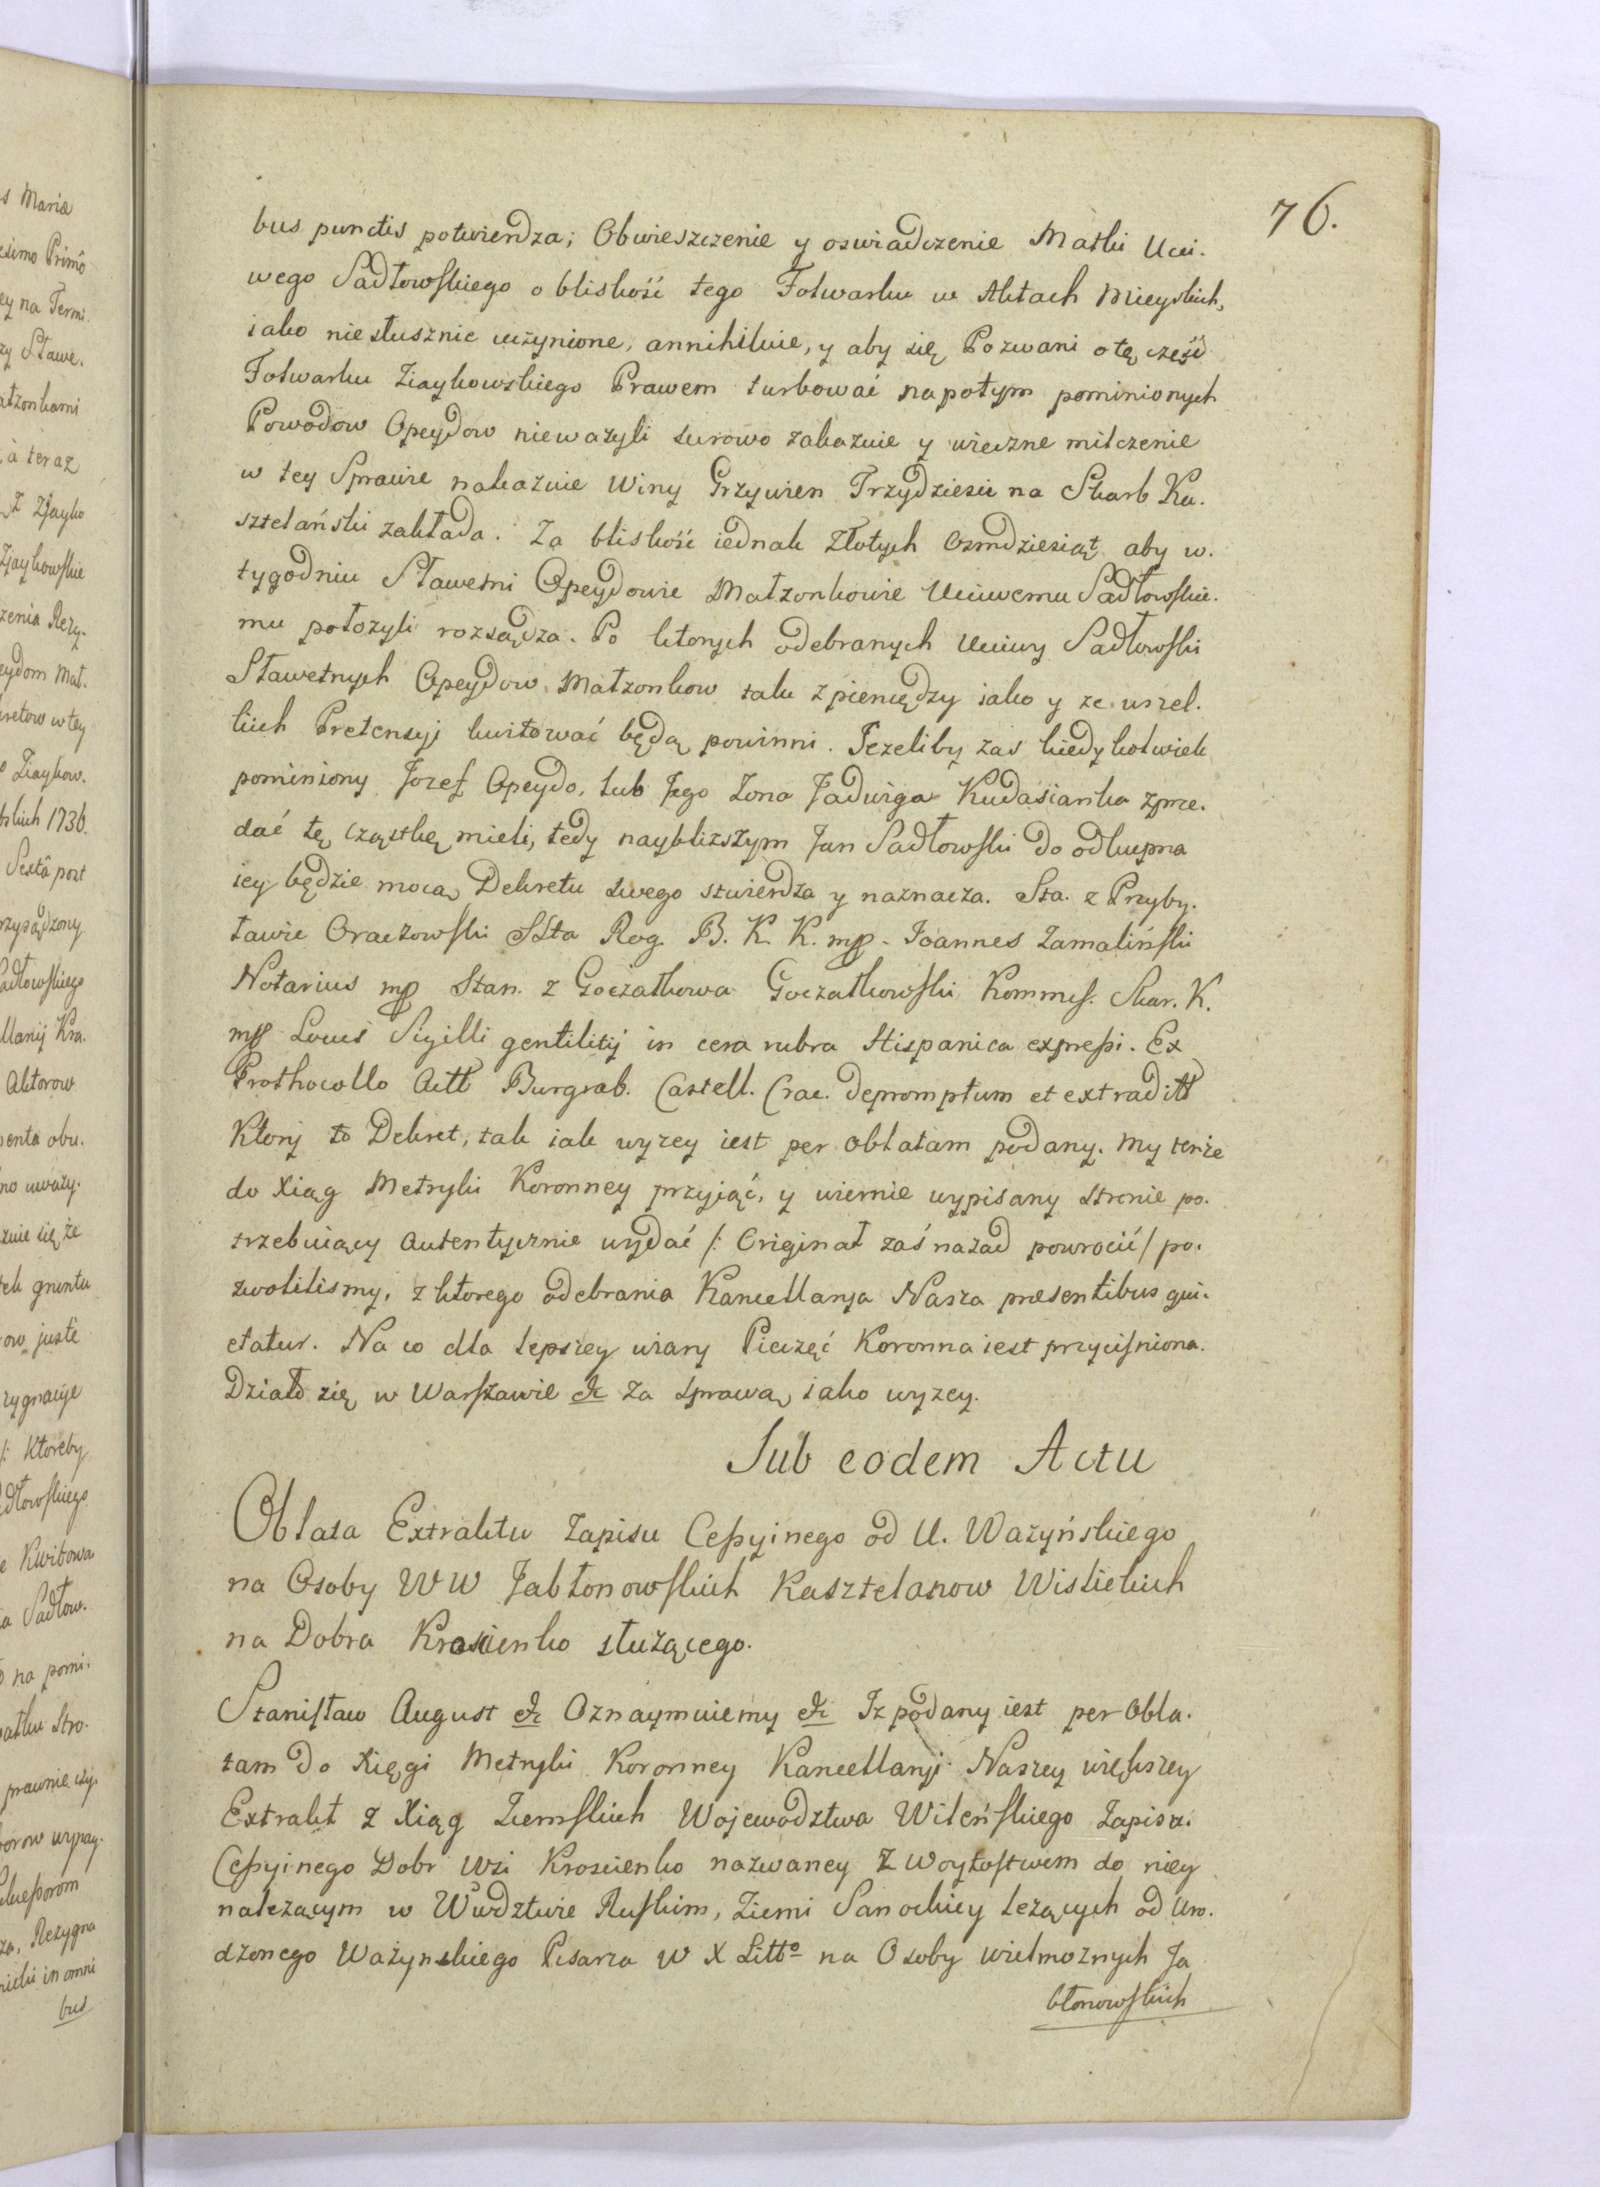 76.
bus punctis potwierdza; Obwieszczenie y oswiadczenie Matki Ucci.
wego Sadłowskiego o bliskość tego Folwarku w Aktach Mieyskich,
iako niesłusznie uczynione, annihiluie, y aby się Pozwani o tę część
Folwarku Ziaykowskiego Prawem turbować napotym pominionych
Powodow Opeydow nieważyli surowo zakazuie y wieczne milczenie
w tey Sprawie nakazuie Winy Grzywien Trzydziesci na Skarb Ka.
sztelański zakłada. Za bliskość iednak Złotych Osmdziesiąt aby w.
tygodniu Sławetni Opeydowie Małzonkowie Ucciwemu Sadłowskie.
mu połozyli rozsądza. Po ktorych odebranych Ucciwy Sadłowski
Sławetnych Opeydow Małzonkow tak z pieniędzy iako y ze wszel.
kich Pretensyj kwitować będą powinni. Jezeliby zas kiedykolwiek
pominiony Jozef Opeydo, lub Jego Zona Jadwiga Kudasianka zprze.
dać tę cząstkę mieli, tedy naybliższym Jan Sadłowski do odkupna
iey będzie mocą Dekretu swego stwierdza y naznacza. Sta. z Przyby.
ławic Oraczowski SSta Rog. B. K. K. mp. Joannes Zamaliński
Notarius mp Stan. z Goczałkowa Goczałkowski Kommis. Skar. K.
mp Locus Sigilli gentilitij in cera rubra Hispanica expressi. Ex
Prothocollo Actt Burgrab. Castell. Crac. depromptum et extraditt
Ktory to Dekret, tak iak wyzey iest per oblatam podany. My tenże
do Xiąg Metryki Koronney przyiąć, y wiernie wypisany stronie po.
trzebuiący autentycznie wydać /: Originał zaś nazad powrocić / po.
zwolilismy, z ktorego odebrania Kancellarya Nasza præsentibus qui.
etatur. Na co dla lepszey wiary Pieczęć Koronna iest przyciśniona.
Działo się w Warszawie &c Za sprawą iako wyzey.
Sub eodem Actu
Oblata Extraktu Zapisu Cessyinego od U. Ważyńskiego
na Osoby WW Jabłonowskich Kasztelanow Wislickich
na Dobra Kroscienko służącego.
Stanisław August &c Oznaymuiemy &c Iz podany iest per Obla.
tam do Xięgi Metryki Koronney Kancellaryi Naszey większey
Extrakt z Xiąg Ziemskich Wojewodztwa Wileńskiego Zapisu.
Cessyinego Dobr Wsi Kroscienko nazwaney z Woytostwem do niey
nalezącym w Wwdztwie Ruskim, Ziemi Sanockiey leżących od Uro.
dzonego Ważynskiego Pisarza W X Litto na Osoby wielmoznych Ja
błonowskich